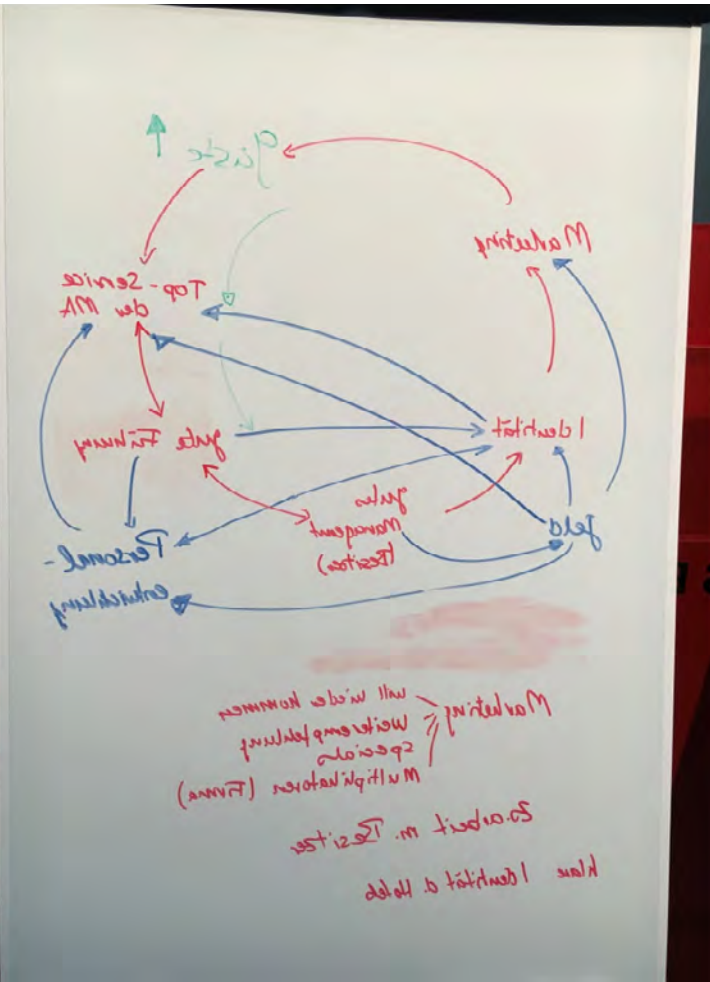 Gäste
Marketing
Top-Service
der MA
Identität
gute Führung
gutes
Management
(Besitzer)
Geld
Personal-
entwicklung
Marketing
will wieder kommen
Weiterempfehlung
Specials
Multiplikatoren (Firma)
Zs.arbeit m. Besitzer
klare Identität d. Hotels